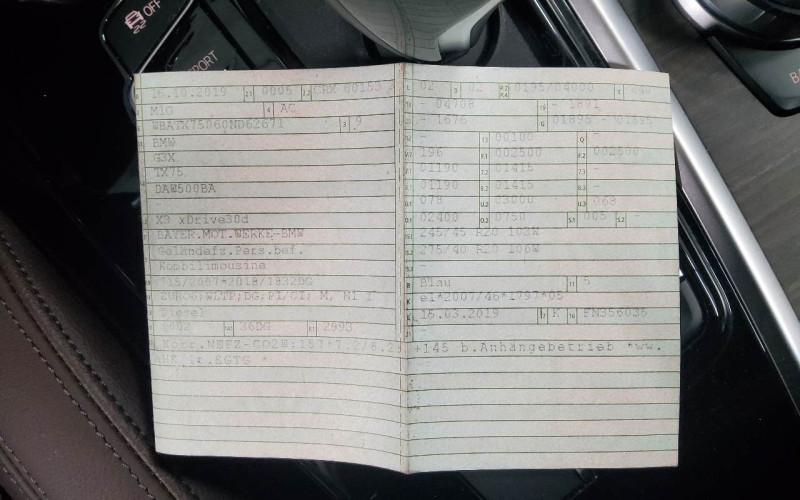 OFF
PORT
16.10.2019 2.1 0005 2.2
M1G 4 AC
WBATX75060ND62671 3 9
BMW
G3X
TX75
DAW500BA
-
X3 xDrive30d
BAYER.MOT.WERKE-BMW
Geländefz.Pers.bef.
Kombilimousine
715/2007*2018/1832DG
EURO6;WLTP;DG;PI/CI; M, N1 I
Diesel
0002 36DG 2993
Korr.NEFZ-CO2
AHK lt.EGTG *
L 02 9 02 P.2 P.4 0195/04000 T
- 04708 19 - 1891
- 1676 G 01895 - 01895
- 13 00100 Q -
196 F.1 002500 F.2 002500
01190 7.2 01415 7.3 -
01190 8.2 01415 8.3 -
078 U.2 03000 U.3 068
02400 O.2 0750 S.1 005 S.2 -
245/45 R20 103W
275/40 R20 106W
-
R Blau 11 5
K e1*2007/46*1797*05
15.03.2019 17 K 16
+145 b.Anhängebetrieb *ww.